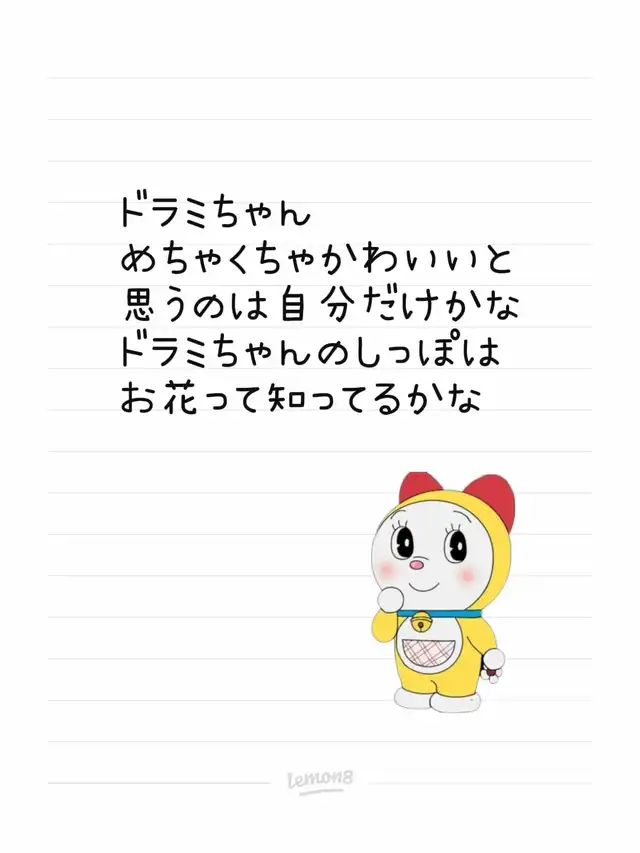 ドラミちゃん
めちゃくちゃかわいいと
思うのは自分だけかな
ドラミちゃんのしっぽは
お花って知ってるかな
lemon8